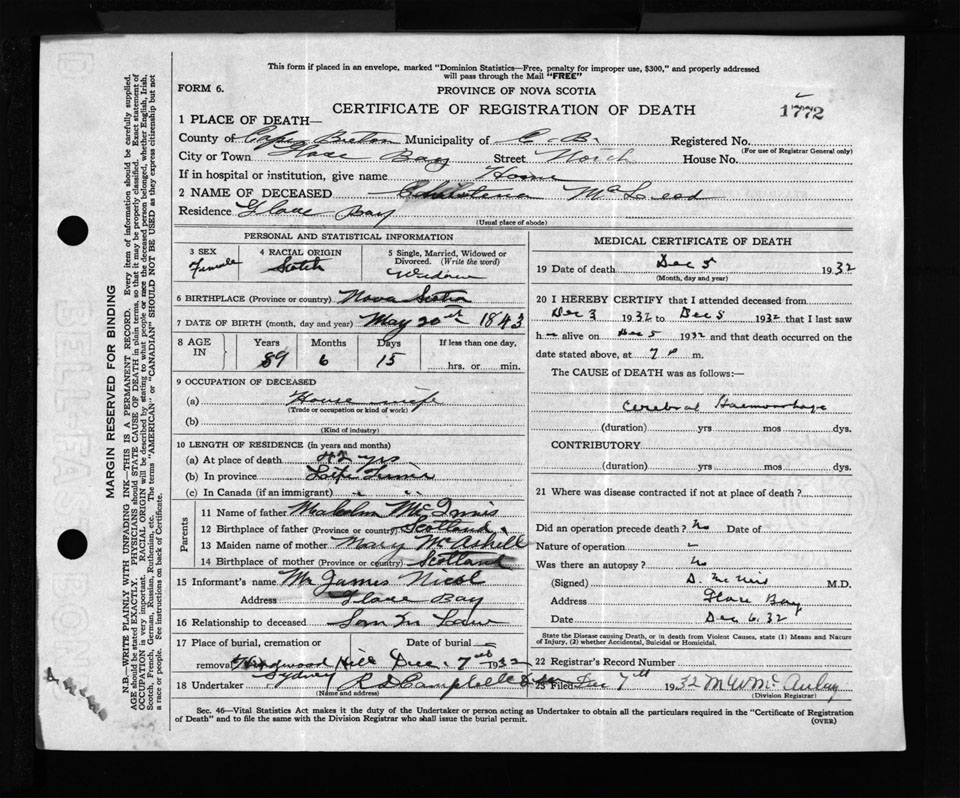 This form if placed in an envelope, marked "Dominion Statistics—Free, penalty for improper use, $300," and properly addressed
will pass through the Mail "FREE"
FORM 6.
PROVINCE OF NOVA SCOTIA
CERTIFICATE OF REGISTRATION OF DEATH
1772
1 PLACE OF DEATH—
County of Cape Breton Municipality of C-B. Registered No.
(For use of Registrar General only)
City or Town Glace Bay Street North House No.
If in hospital or institution, give name Home
2 NAME OF DECEASED Christena McLeod
Residence Glace Bay
(Usual place of abode)
PERSONAL AND STATISTICAL INFORMATION
3 SEX 4 RACIAL ORIGIN 5 Single, Married, Widowed or
Divorced. (Write the word)
Female Scotch Widow
6 BIRTHPLACE (Province or country) Nova Scotia
7 DATE OF BIRTH (month, day and year) May 20th 1843
8 AGE IN Years Months Days If less than one day,
89 6 15 hrs. or min.
9 OCCUPATION OF DECEASED
(a) House wife
(Trade or occupation or kind of work)
(b)
(Kind of industry)
10 LENGTH OF RESIDENCE (in years and months)
(a) At place of death yrs
(b) In province Life Time
(c) In Canada (if an immigrant) " "
Parents
11 Name of father Malcolm McInnis
12 Birthplace of father (Province or country) Scotland
13 Maiden name of mother Mary McAskell
14 Birthplace of mother (Province or country) Scotland
15 Informant's name Mr James Nicol
Address Glace Bay
16 Relationship to deceased Son In Law
17 Place of burial, cremation or Date of burial
removal Hardwood Hill Dec. 7th 1932
Sydney
18 Undertaker R D Campbell
(Name and address)
MEDICAL CERTIFICATE OF DEATH
19 Date of death Dec 5 1932
(Month, day and year)
20 I HEREBY CERTIFY that I attended deceased from
Dec 3 1932 to Dec 5 1932 that I last saw
h alive on Dec 5 1932 and that death occurred on the
date stated above, at 7 P m.
The CAUSE of DEATH was as follows:—
Cerebral Haemorrhage
(duration) yrs mos dys.
CONTRIBUTORY
(duration) yrs mos dys.
21 Where was disease contracted if not at place of death?
Did an operation precede death? No Date of
Nature of operation –
Was there an autopsy? No
(Signed) D. McNeil M.D.
Address Glace Bay
Date Dec 6.32
State the Disease causing Death, or in death from Violent Causes, state (1) Means and Nature
of Injury, (2) whether Accidental, Suicidal or Homicidal.
22 Registrar's Record Number
23 Filed Dec 7th 1932 M W McAulay
(Division Registrar)
Sec. 46—Vital Statistics Act makes it the duty of the Undertaker or person acting as Undertaker to obtain all the particulars required in the "Certificate of Registration
of Death" and to file the same with the Division Registrar who shall issue the burial permit.
(OVER)
MARGIN RESERVED FOR BINDING
N.B.—WRITE PLAINLY WITH UNFADING INK—THIS IS A PERMANENT RECORD. Every item of information should be carefully supplied.
AGE should be stated EXACTLY. PHYSICIANS should STATE CAUSE OF DEATH in plain terms, so that it may be properly classified. Exact statement of
OCCUPATION is very important. RACIAL ORIGIN will be described by stating to what people or race the deceased person belonged, whether English, Irish,
Scotch, French, German, Russian, Ruthenian, etc. The terms "AMERICAN" or "CANADIAN" SHOULD NOT BE USED as they express citizenship but not
a race or people. See instructions on back of Certificate.